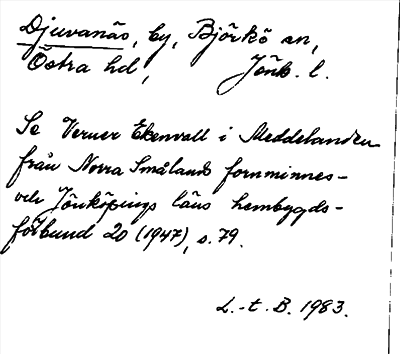 Djuvanäs, by, Björkö sn,
Östra hd, Jönk. l.
Se Verner Ekenvall i Meddelanden
från Norra Smålands fornminnes-
och Jönköpings läns hembygds-
förbund 20 (1947), s. 79.
L.-t. B. 1983.